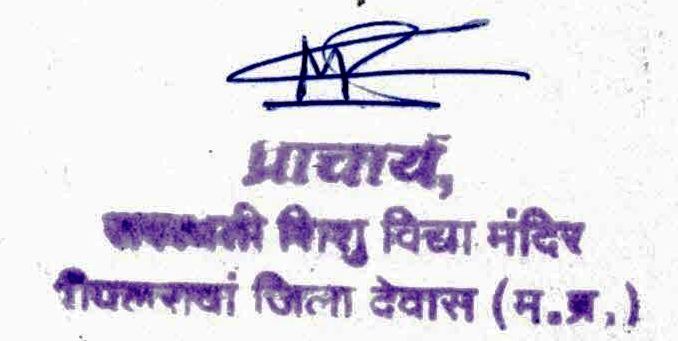 प्राचार्य,
सरस्वती शिशु विद्या मंदिर
पीपलरावां जिला देवास (म.प्र.)